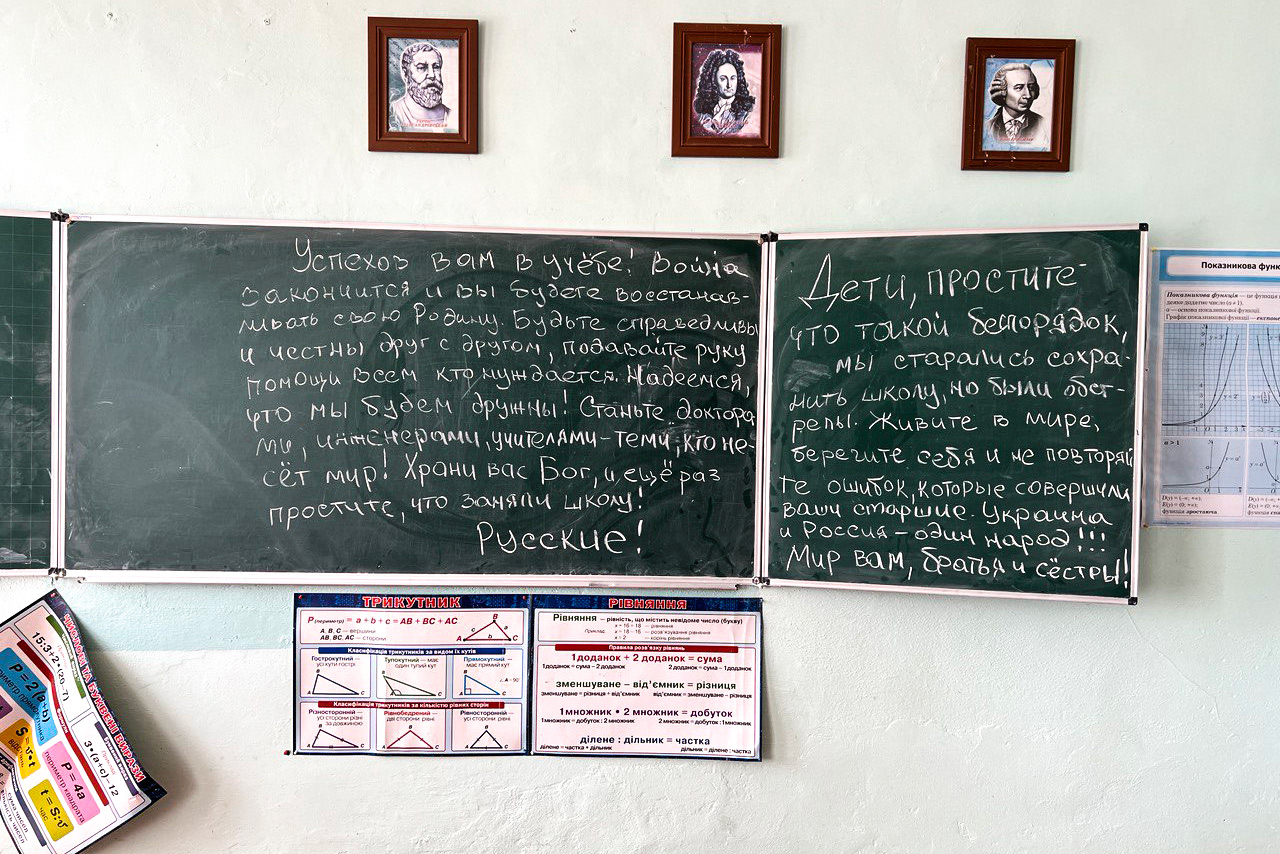 Успехов вам в учёбе! Война
закончится и вы будете восстанав-
ливать свою Родину. Будьте справедливы
и честны друг с другом, подавайте руку
помощи всем кто нуждается. Надеемся,
что мы будем дружны! Станьте доктора-
ми, инженерами, учителями-теми, кто не-
сёт мир! Храни вас Бог, и ещё раз
простите, что заняли школу!
Русские!
Дети, простите
что такой беспорядок,
мы старались сохра-
нить школу, но были обст-
релы. Живите в мире,
берегите себя и не повторяй
те ошибок, которые совершили
ваши старшие. Украина
и Россия - один народ!!!
Мир вам, братья и сёстры!
Показникова функ
Показникова функція — це функція
деяке додатне число (a≠1).
a — основа показникової функції.
Графік показникової функції —
a > 1
D(y) = (-∞; +∞);
E(y) = (0; +∞);
функція зростаюча
ТРИКУТНИК
P(периметр) = a + b + c = AB + BC + AC
A, B, C — вершини
AB, BC, AC — сторони
Класифікація трикутників за видом їх кутів
Гострокутний —
усі кути гострі
Тупокутний — має
один тупий кут
Прямокутний —
має прямий кут
Класифікація трикутників за кількістю рівних сторін
Різносторонній —
усі сторони різні
за довжиною
Рівнобедрений —
дві сторони рівні
Рівносторонній —
усі сторони рівні
РІВНЯННЯ
Рівняння — рівність, що містить невідоме число (букву)
Приклад:
x + 16 = 18 — рівняння
x = 18 - 16 — розв'язування рівняння
x = 2 — корінь рівняння
Правила розв'язку рівнянь
1доданок + 2 доданок = сума
1доданок = сума – 2 доданок
2 доданок = сума – 1доданок
зменшуване – від'ємник = різниця
зменшуване = різниця + від'ємник
від'ємник = зменшуване – різниця
1множник • 2 множник = добуток
1множник = добуток : 2 множник
2множник = добуток : 1множник
ділене : дільник = частка
ділене = частка • дільник
дільник = ділене : частка
ЧИСЛОВІ ТА БУКВЕНІ ВИРАЗИ
15:3+2•(20-7)
3•(a+c)-12
P = 2(a+b)
P = 4a
периметр квадрата
t = S:v
час